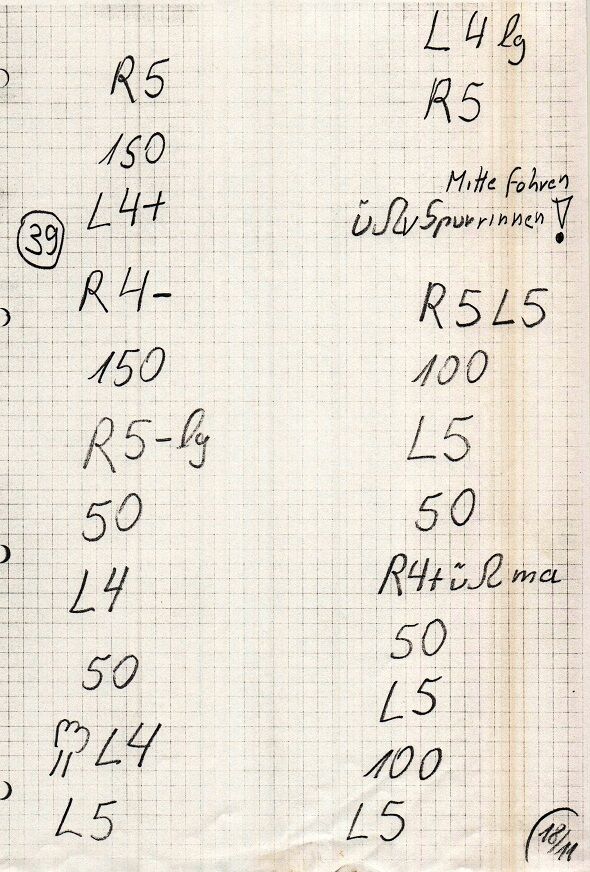 R5
150
L4+
39
R4-
150
R5-lg
50
L4
50
L4
L5
L4 lg
R5
Mitte fahren
üΩv Spurrinnen!
R5 L5
100
L5
50
R4+üΩ ma
50
L5
100
L5
18/11